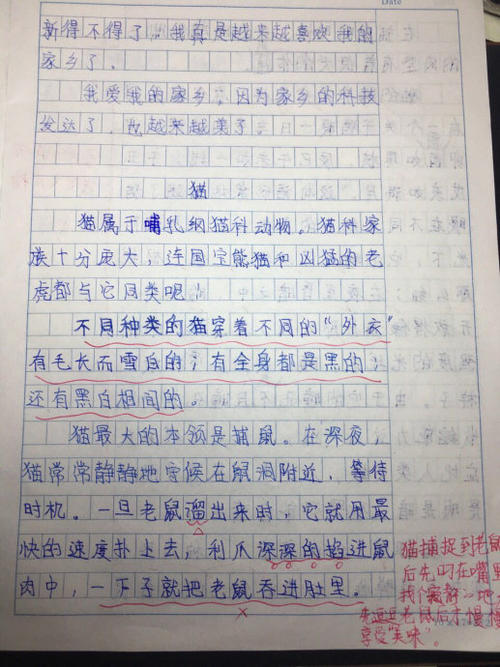 Date
新得不得了。我真是越来越喜欢我的
家乡了。
我爱我的家乡，因为家乡的科技
发达了，也越来越美了。
猫
猫属于哺乳纲猫科动物。猫科家
族十分庞大，连国宝熊猫和凶猛的老
虎都与它同类呢！
不同种类的猫穿着不同的“外衣”
有毛长而雪白的；有全身都是黑的；
还有黑白相间的。
猫最大的本领是捕鼠。在深夜，
猫常常静静地守候在鼠洞附近，等待
时机。一旦老鼠溜出来时，它就用最
快的速度扑上去，利爪深深的掐进鼠
肉中，一下子就把老鼠吞进肚里。
猫捕捉到老鼠
后先叼在嘴里
找个寂静的地
先逗逗老鼠后才慢慢
享受“美味”。